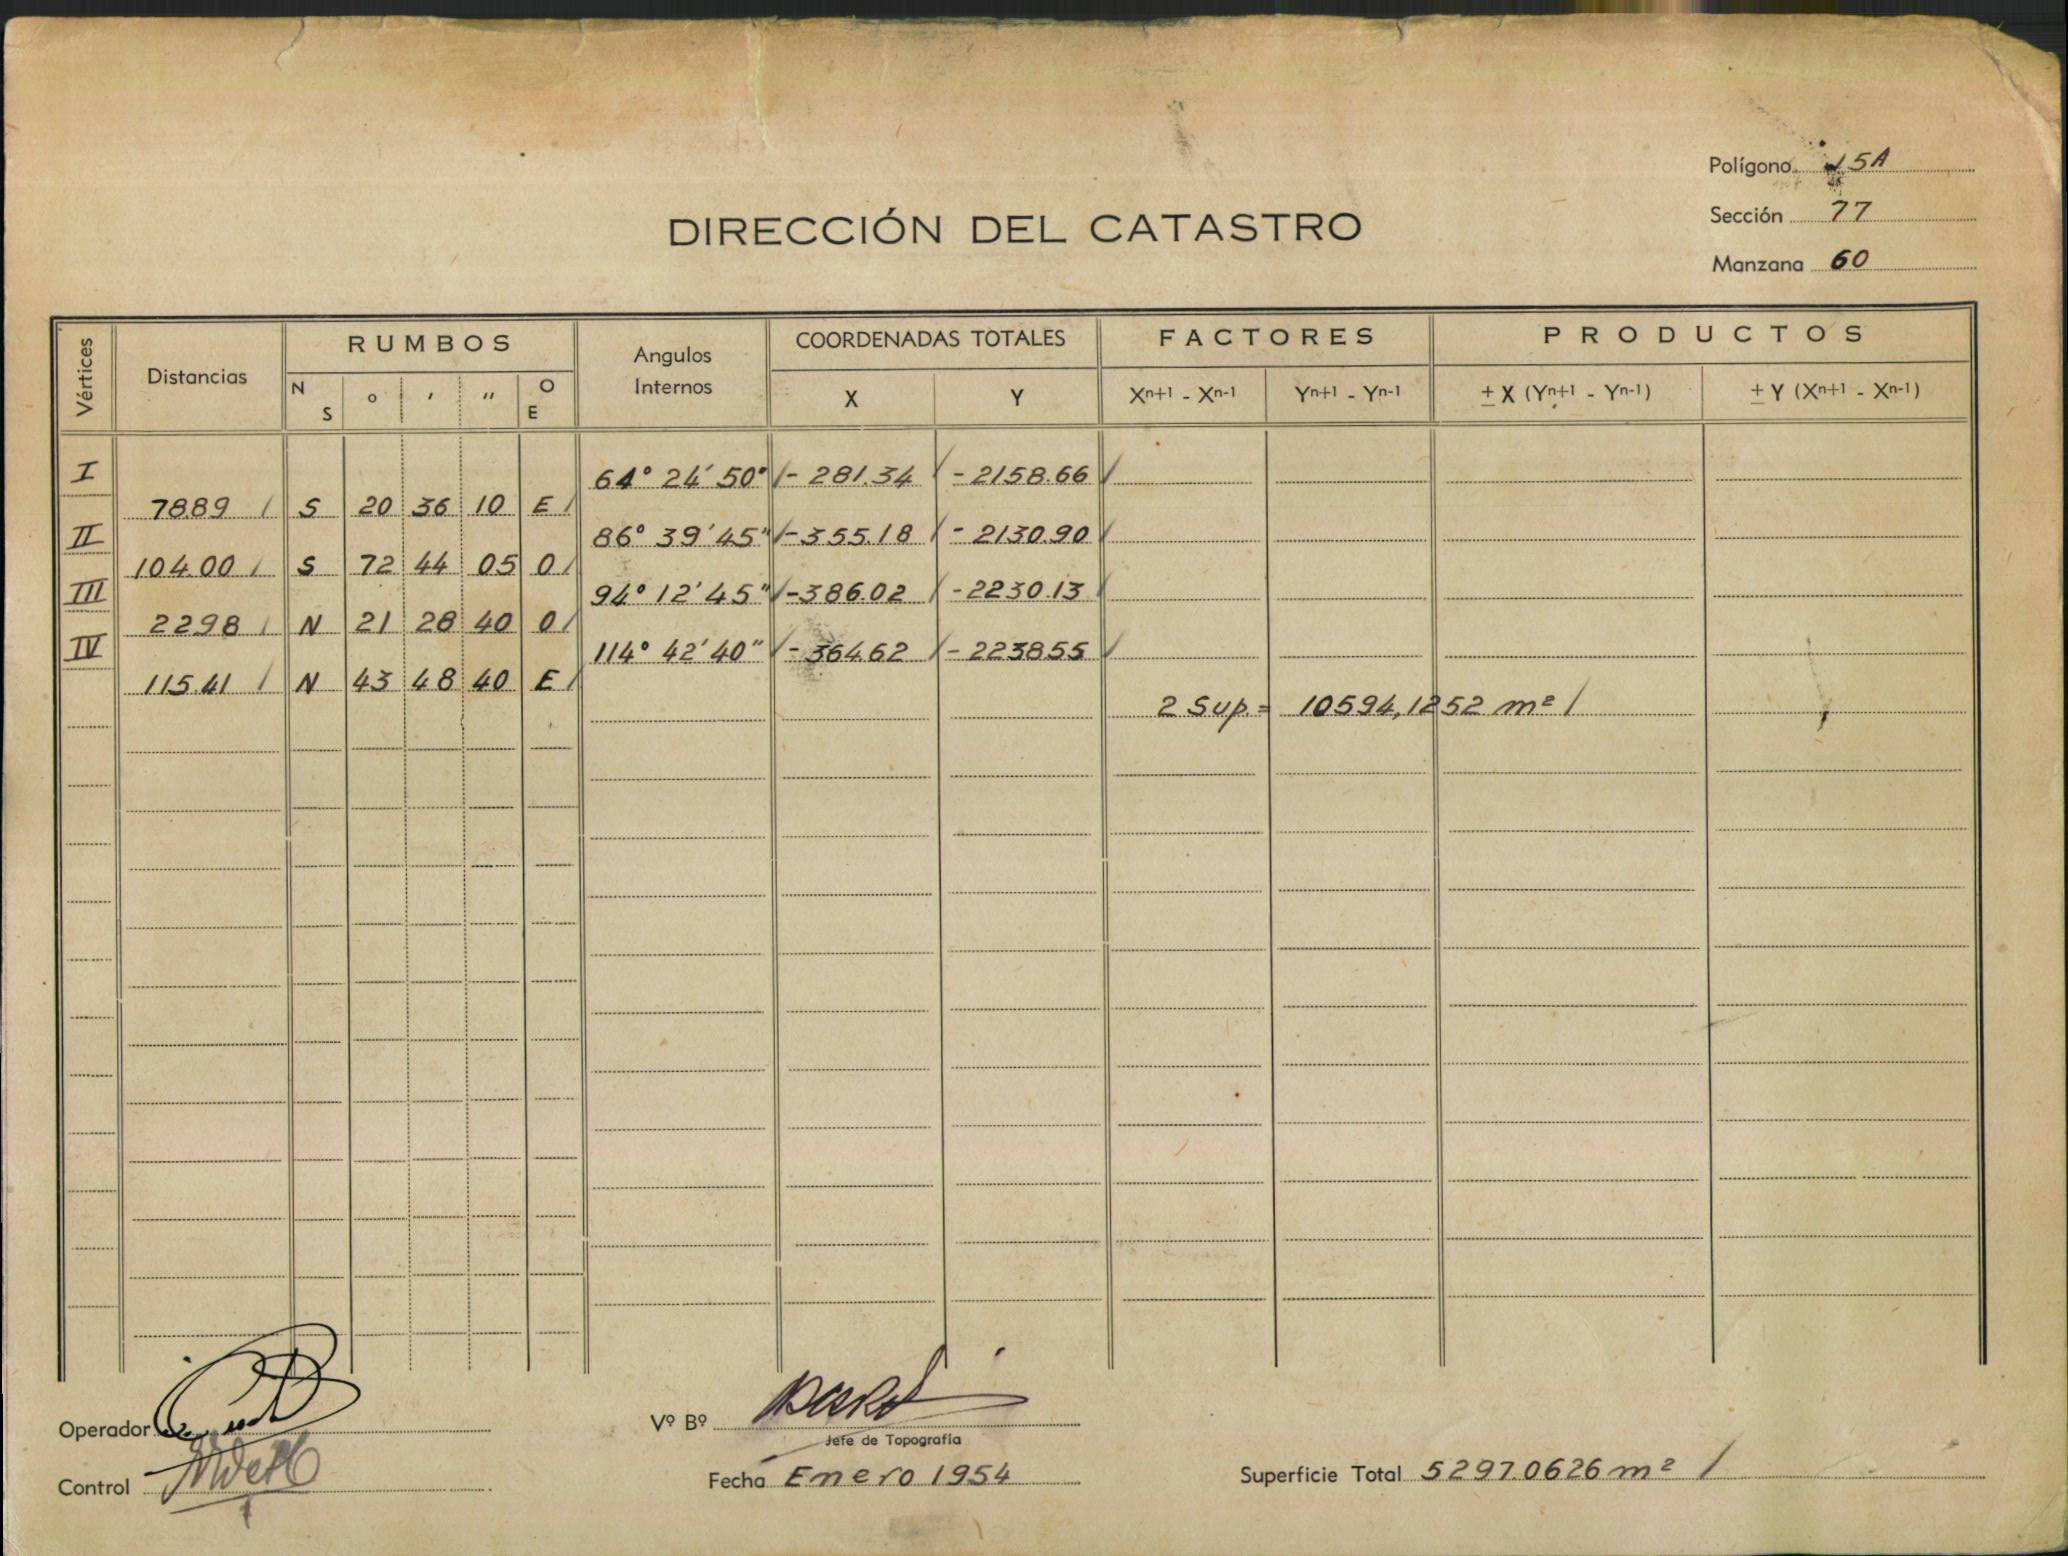 Polígono 15A
DIRECCIÓN DEL CATASTRO
Sección 77
Manzana 60
Vértices Distancias RUMBOS Angulos Internos COORDENADAS TOTALES FACTORES PRODUCTOS
N S ° ' " O E X Y Xⁿ⁺¹ - Xⁿ⁻¹ Yⁿ⁺¹ - Yⁿ⁻¹ ± X (Yⁿ⁺¹ - Yⁿ⁻¹) ± Y (Xⁿ⁺¹ - Xⁿ⁻¹)
I 64° 24' 50" / - 281.34 / - 2158.66 /
78.89 / S 20 36 10 E /
II 86° 39' 45" / - 355.18 / - 2130.90 /
104.00 / S 72 44 05 O /
III 94° 12' 45" / - 386.02 / - 2230.13 /
22.98 / N 21 28 40 O /
IV 114° 42' 40" / - 364.62 / - 2238.55 /
115.41 / N 43 48 40 E /
2 Sup. = 10594,1252 m² /
Operador
Vº Bº
Jefe de Topografía
Control
Fecha Enero 1954
Superficie Total 5297.0626 m² /